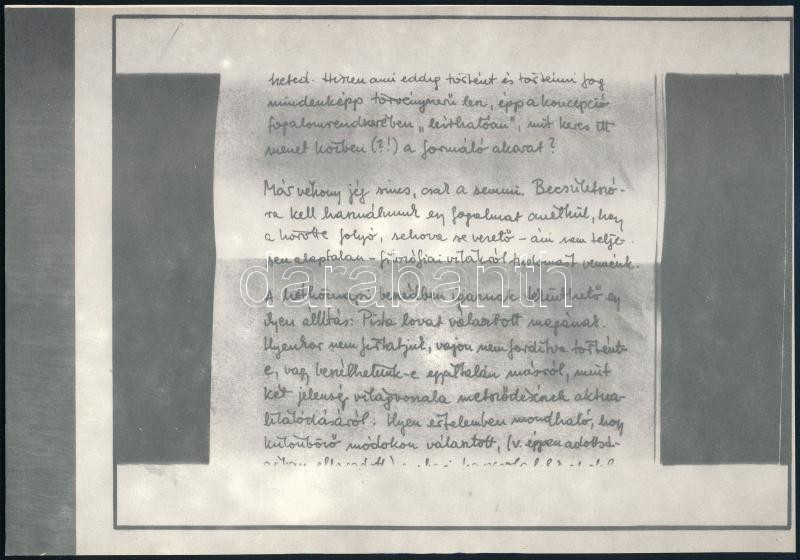 heted. Hiszen ami eddig történt és történni fog
mindenképp törvényszerű lesz, épp a koncepció
fogalomrendszerében „leírhatóan”, mit keres itt
menet közben (?!) a formáló akarat?
Már vékony jég sincs, csak a semmi. Becsületszó-
ra kell használnunk egy fogalmat anélkül, hogy
a körötte folyó, sehova se vezető – ám nem telje-
sen alaptalan – filozófiai vitákról tudomást vennénk.
A hétköznapi beszédben igaznak tekinthető egy
ilyen állítás: Pista lovat választott magának.
Ilyenkor nem firtatjuk, vajon nem fordítva történt-
e, vagy beszélhetünk-e egyáltalán másról, mint
két jelenség világvonala metsződésének aktua-
lizálódásáról. Ilyen értelemben mondható, hogy
különböző módokon választott, (v. éppen adottsá-
darabanth